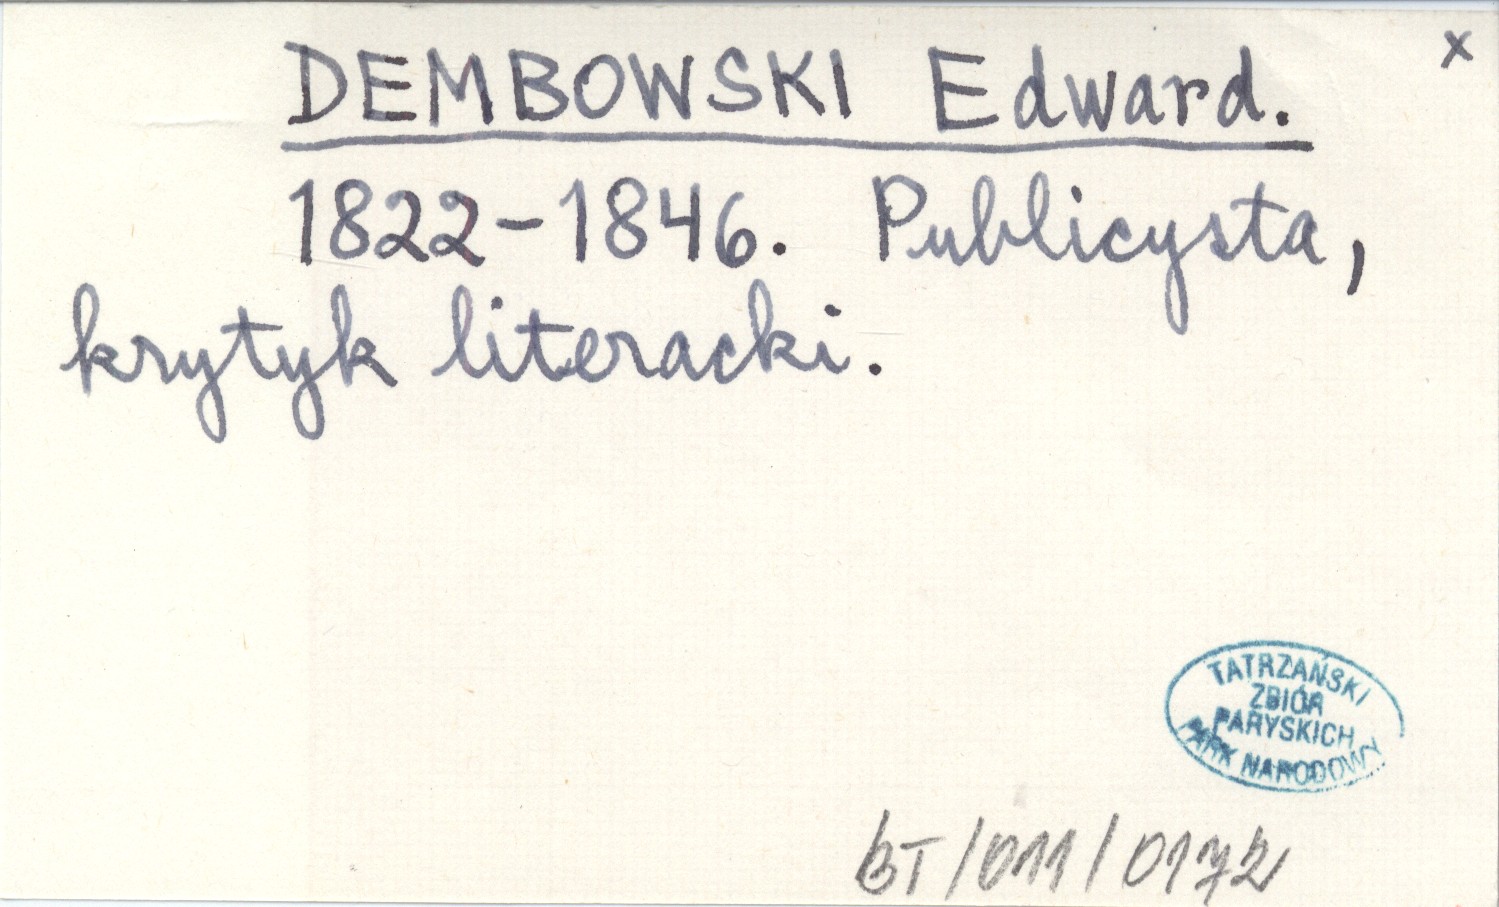 x
DEMBOWSKI Edward.
1822-1846. Publicysta,
krytyk literacki.
TATRZAŃSKI
ZBIÓR
PARYSKICH
PARK NARODOWY
BT/011/0172